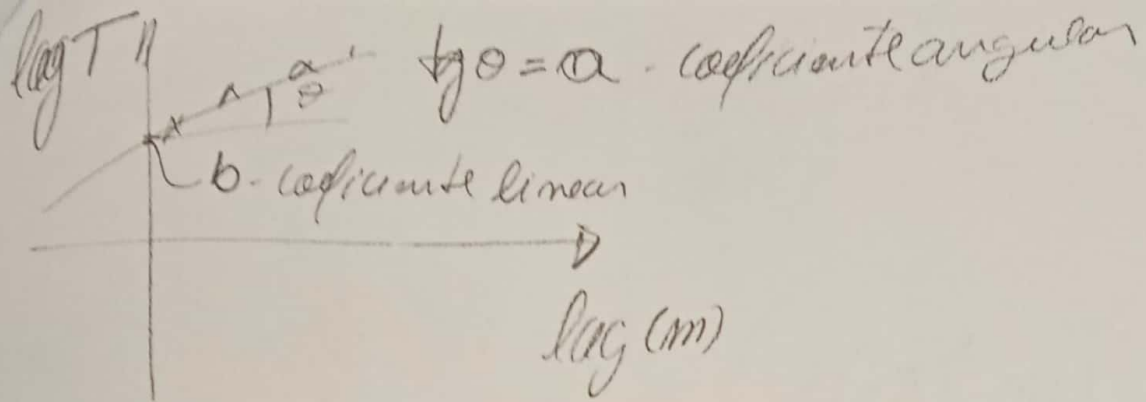 log T
tgθ = a - coeficiente angular
a
θ
b - coeficiente linear
log (m)